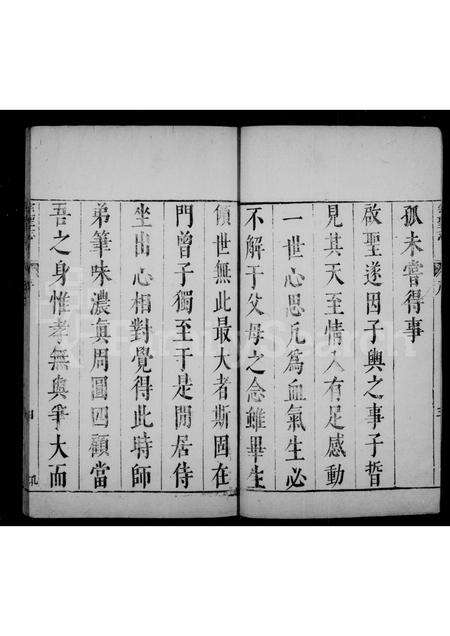 孤未嘗得事
啟聖遂因子輿之事子晳
見其天至情人有足感動
一世心思凡為血氣生必
不解于父母之念雖畢生
傾世無此最大者斯固在
門曾子獨至于是閒居侍
坐由心相對覺得此時師
弟筆味濃真周圖四顧當
吾之身惟孝無與爭大而